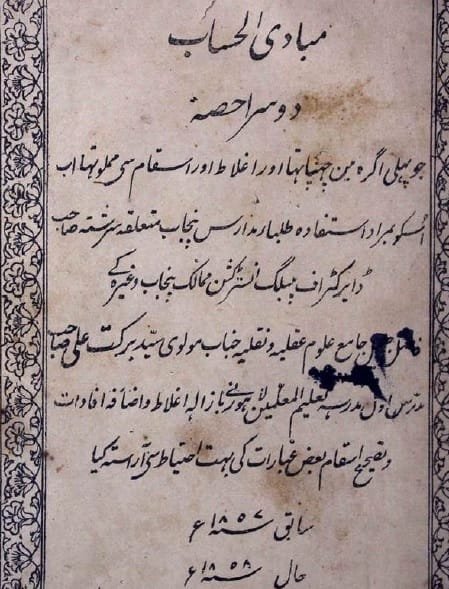 مبادی الحساب
دوسرا حصہ
جو پہلی اگرہ مین چہپا تہا اور اغلاط اور اسقام سی مملو تہا اب
اسکو بمراد استفادہ طلبار مدارس پنجاب متعلقہ سررشتہ صاحب
ڈایرکٹر اف پبلک انسٹرکشن ممالک پنجاب وغیرہ کے
جامع علوم عقلیہ و نقلیہ جناب مولوی سید برکت علی صاحب
مدرس اول مدرسہ تعلیم المعلمین لاہور نے بازالہ اغلاط و اضافہ افادات
و تصحیح اسقام بعض عبارات کی بہت احتیاط سی آراستہ کیا
سابق سنہ ۱۸۵۷ ء
حال سنہ ۱۸۵۸ ء